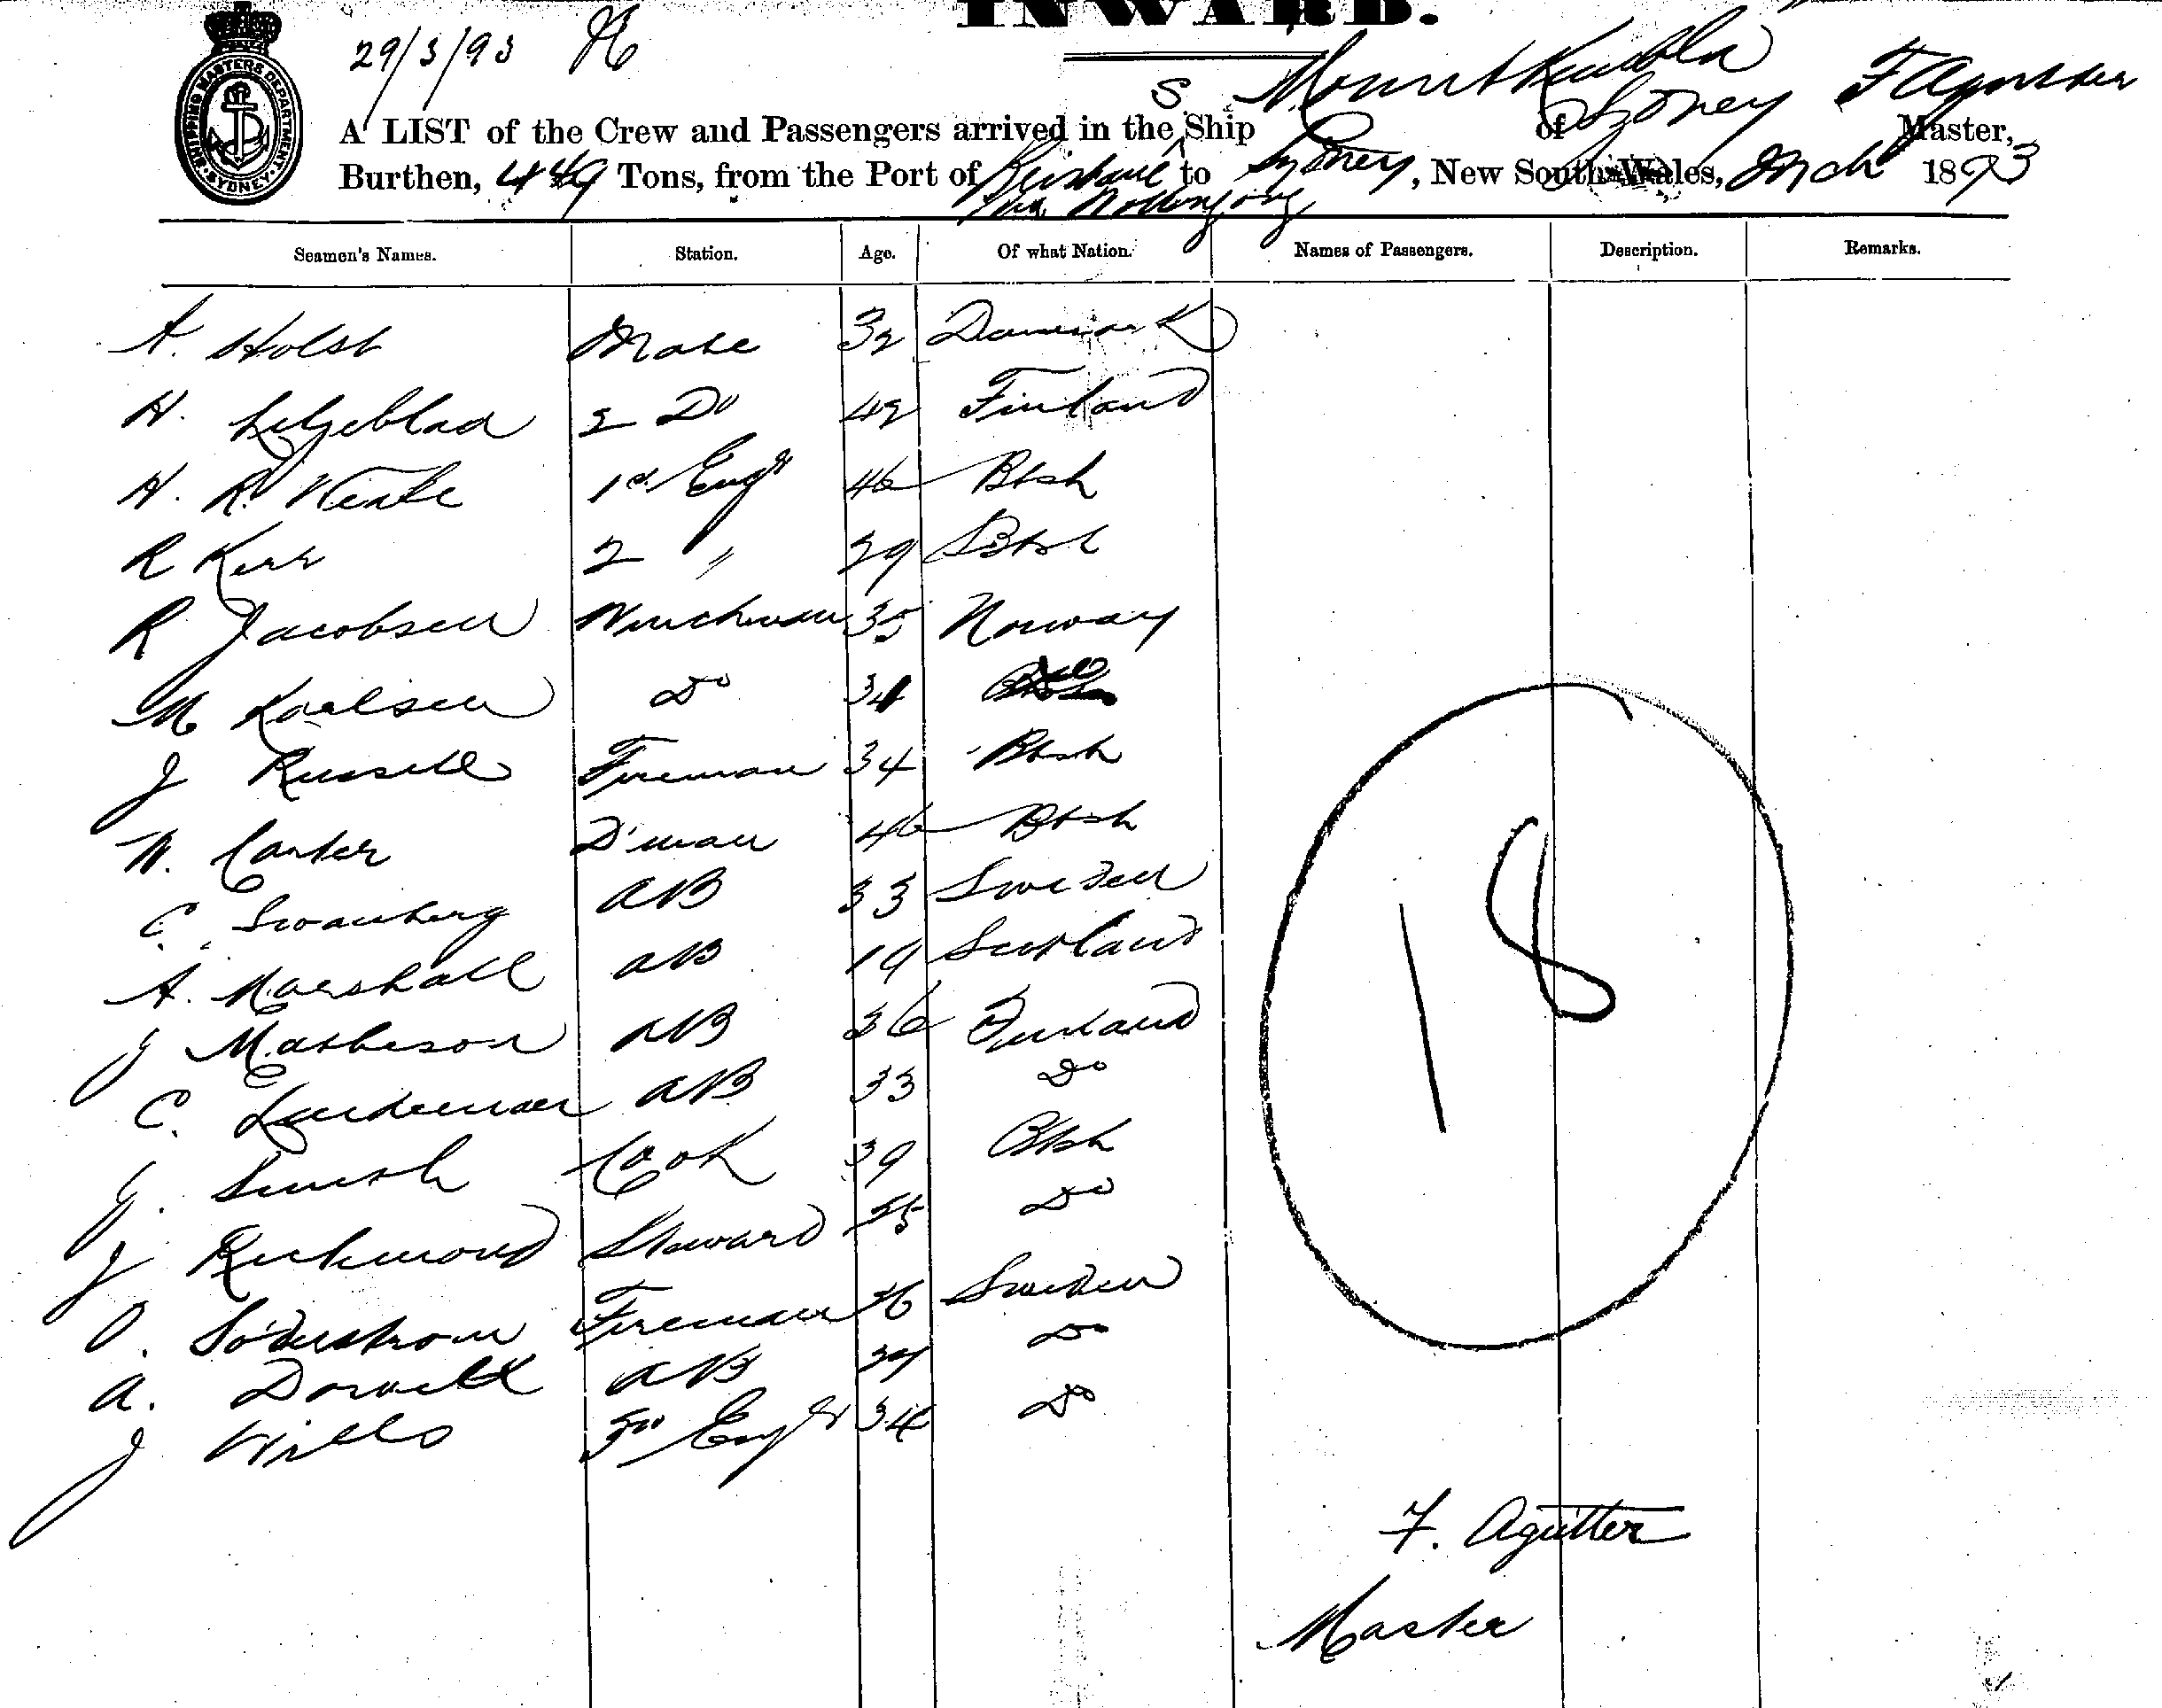 INWARD.
29/3/93
SHIPPING MASTERS DEPARTMENT SYDNEY
A LIST of the Crew and Passengers arrived in the S Ship Mount Kembla of Sydney F Agutter Master,
Burthen, 449 Tons, from the Port of Brisbane to Sydney, New South Wales, Mch 1893
via Wollongong
Seamen's Names. Station. Age. Of what Nation. Names of Passengers. Description. Remarks.
A. Holst Mate 32 Denmark
H. 2 Do 42 Finland
H. R. Neale 1st Engr 46 Btsh
R Kerr 2 " 29 Btsh
R Jacobsen Winchman 35 Norway
M Karlsen Do 34
J Russell Fireman 34 Btsh
W. Carter D'man 46 Btsh
C. Swanberg AB 33 Sweden
A. Marshall AB 19 Scotland
J Matheson AB 36 Finland
C. Lindeman AB 33 Do
G. Smith Cook 39 Btsh
J Richmond Steward 25 Do
O. Söderstrom Fireman 26 Sweden
A. AB Do
J Wills 3rd Engr 34 Do
18
F. Agutter
Master